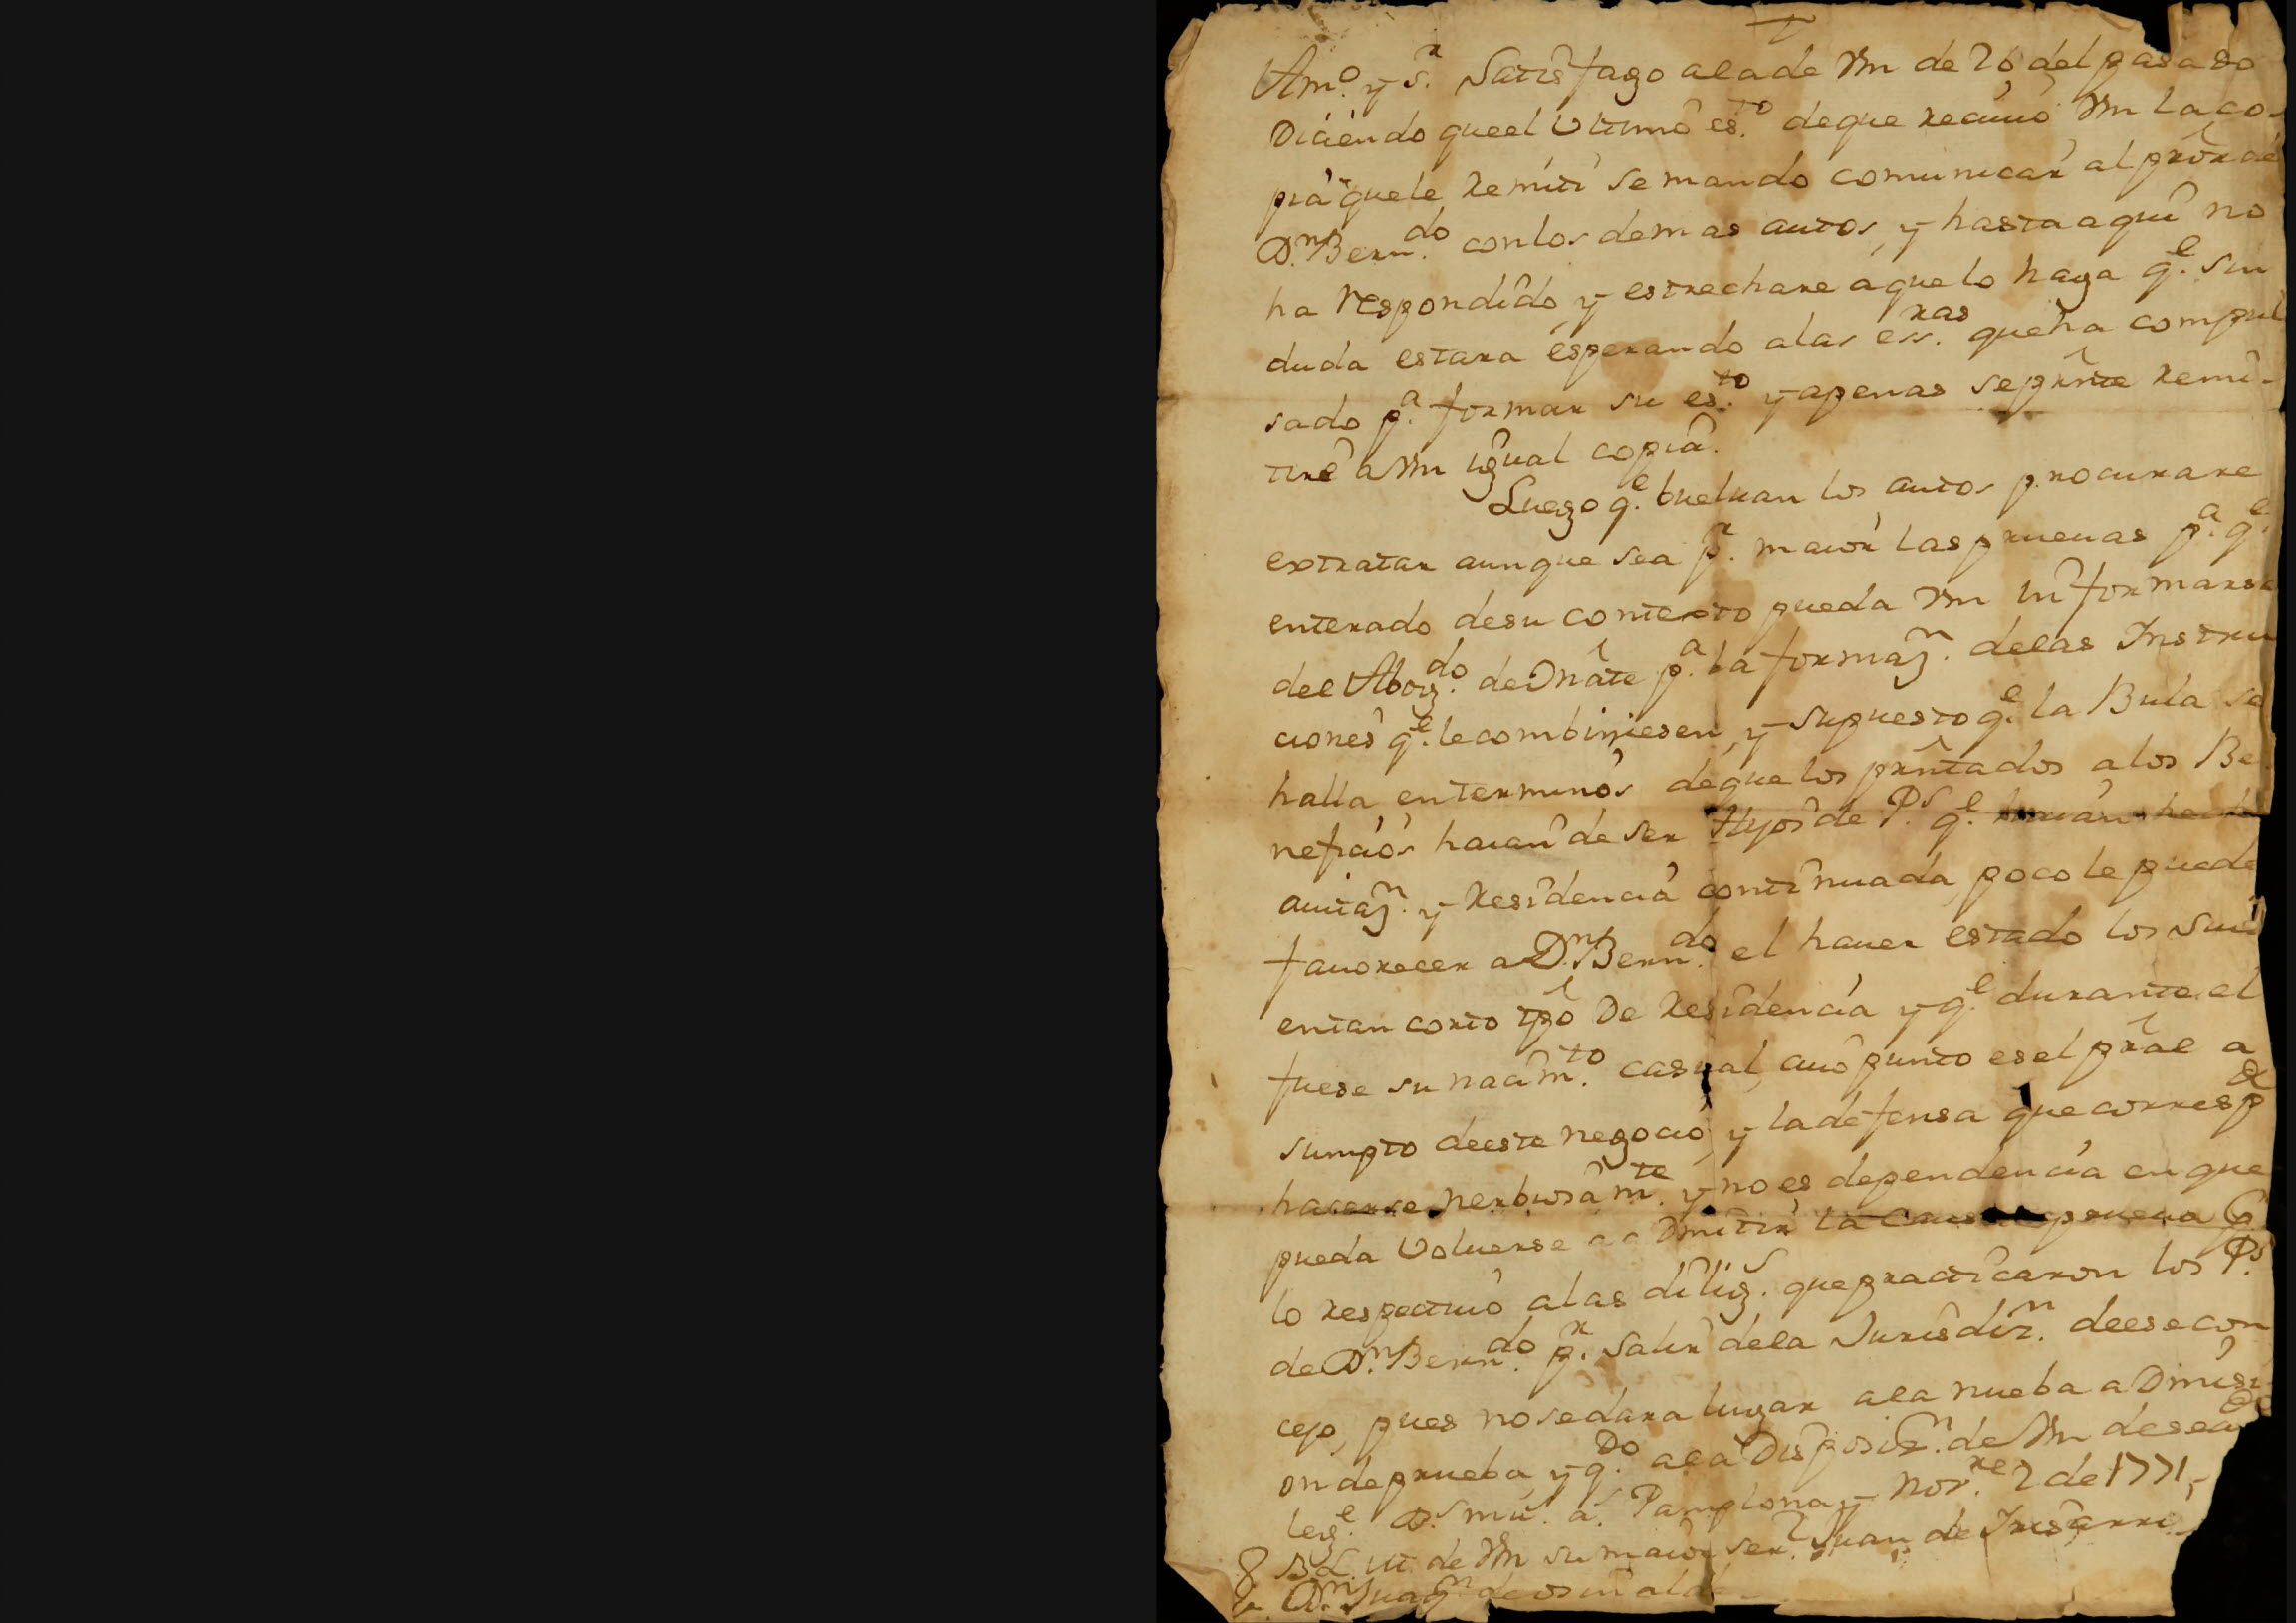 Amo. y Sr. Satisfago a la de Vm de 26 del pasado
Diciendo que el Vltimo esto. de que reciuio Vm la co-
pia que le remiti se mando comunicar al pror de
Dn. Berndo. con los demas autos, y hasta aqui no
ha respondido, y estrechare a que lo haga qe. sin
duda estara esperando a las essras. que ha compul
sado pa. formar su esto. y apenas se prnte remi-
tire a Vm igual copia.
Luego qe. buelvan los autos procurare
extratar aunque sea pr. maior las prueuas pa. qe.
enterado de su contexto pueda Vm informarse
del Abogdo. de Oñate pa. la formazn. de las Instru
ciones qe. le combiniesen, y supuesto qe. la Bula se
halla en terminos de que los prntados a los Be
neficios hauian de ser Hijos de Ps. qe.
auitazn. y Residencia continuada, poco le puede
fauorecer a Dn. Berndo. el hauer estado los Suios
en tan corto tpo De Residencia y qe. durante el
fuese su nacimto. casual, cuio punto es el pral a
sumpto de este negocio, y la defensa que correspde
hacerse nerbiosamte. y no es dependencia en que
pueda Voluerse a aDmitir la prueua pr
lo respectiuo a las diligs. que practicaron los Ps.
de Dn. Berndo. pr. salir de la Jurisdizn. de ese con
cejo, pues no se dara lugar a la nueba aDmisi-
on de prueba, y qdo. a la Disposizn. de Vm deseando
le ge. Ds. ms. as. Pamplona y Nore. 2 de 1771,
BLM de Vm su maior serr. Juan de Irisarri
Dn. Juaqn. de